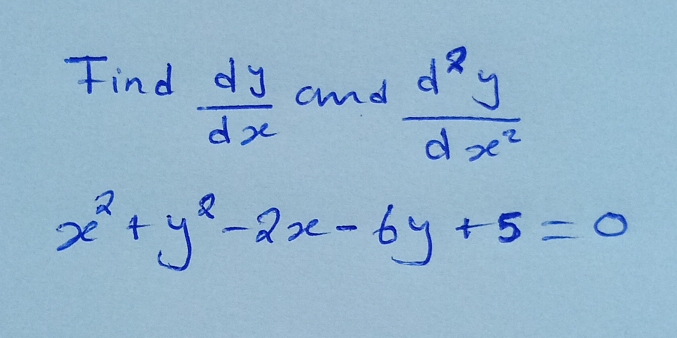 Find dy/dx and d²y/dx²
x² + y² - 2x - 6y + 5 = 0